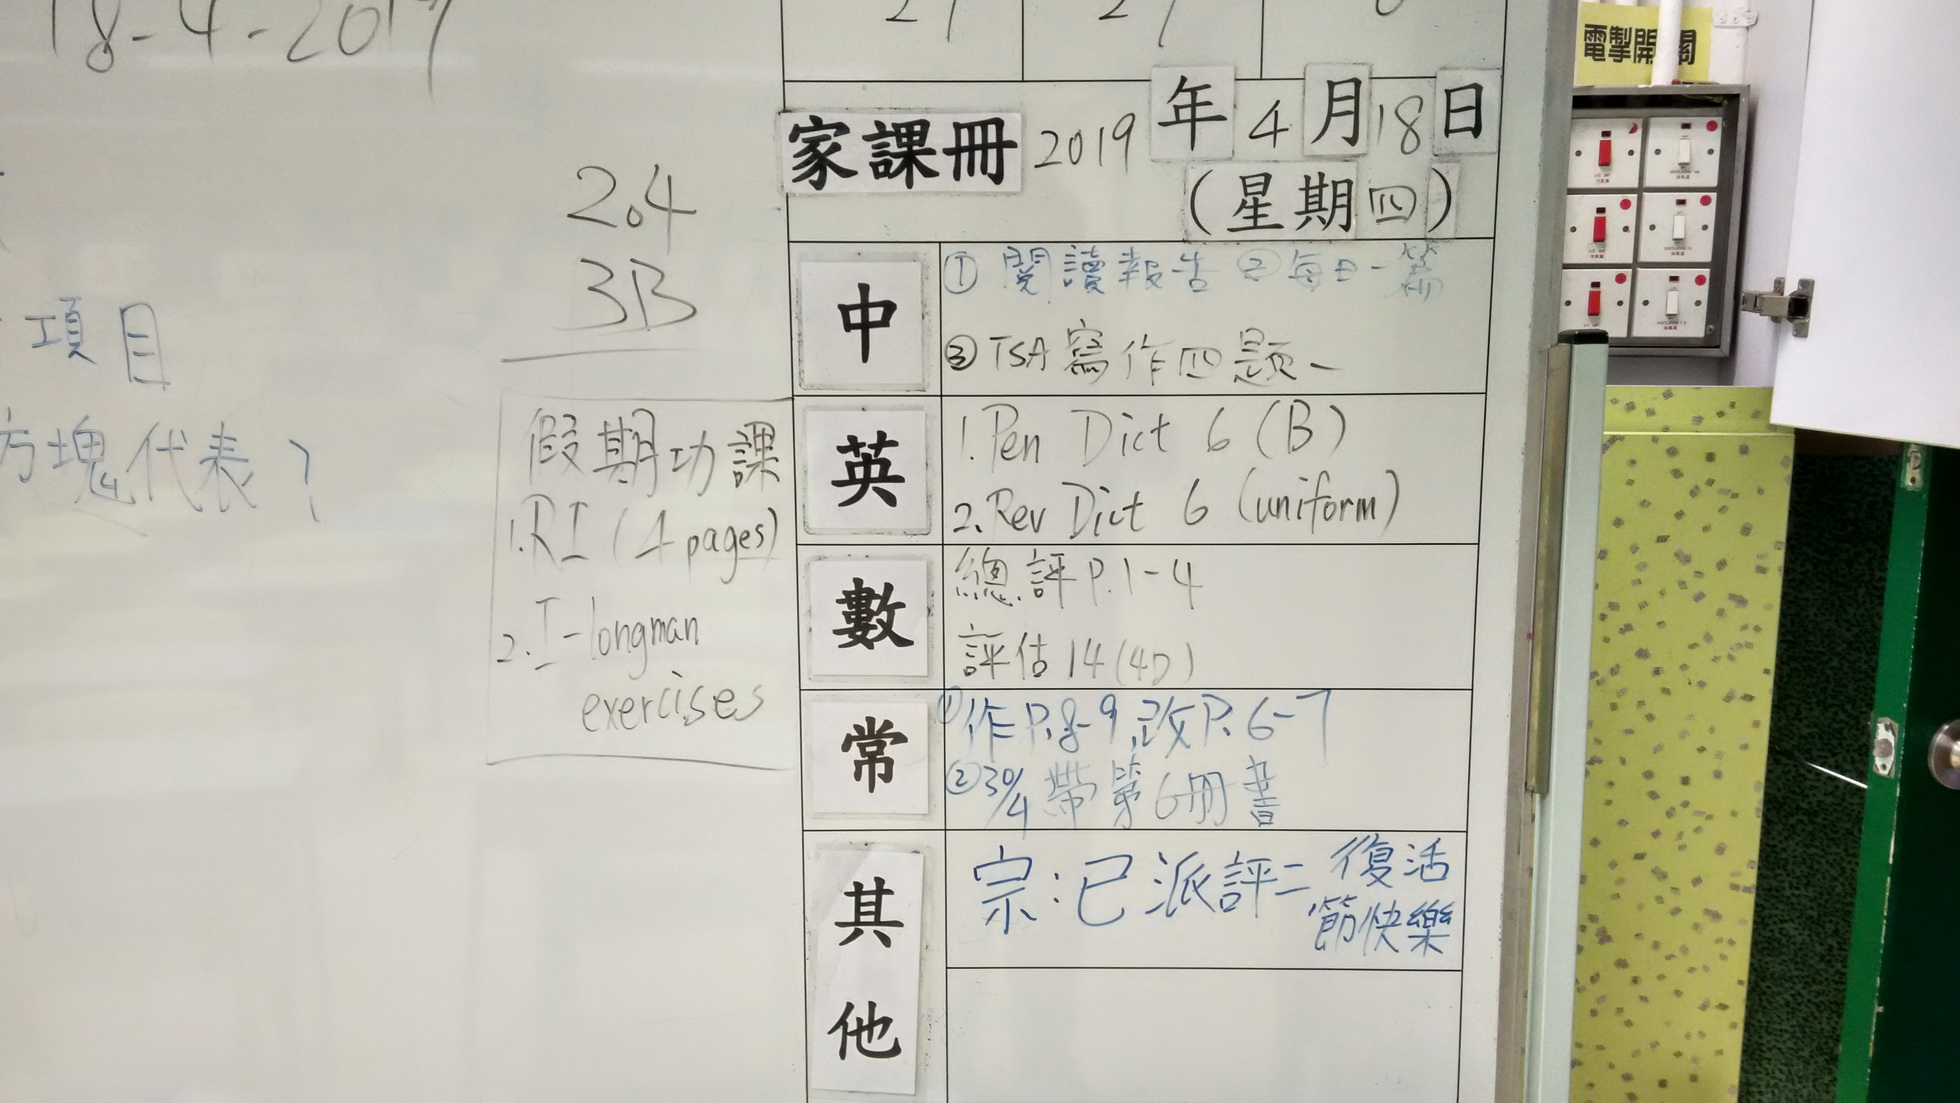 18-4-2019
電掣開關
家課冊 2019 年 4 月 18 日
(星期四)
2.4
3B
中
① 閱讀報告 ② 每日一篇
③ TSA 寫作四題
項目
方塊代表?
假期功課
1. RI (4 pages)
2. I-longman
exercises
英
1. Pen Dict 6 (B)
2. Rev Dict 6 (uniform)
數
總評 P.1-4
評估 14 (4D)
常
① 作 P.8-9, 改 P. 6-7
② 30/4 帶第6冊書
其他
宗:已派評二 復活
節快樂